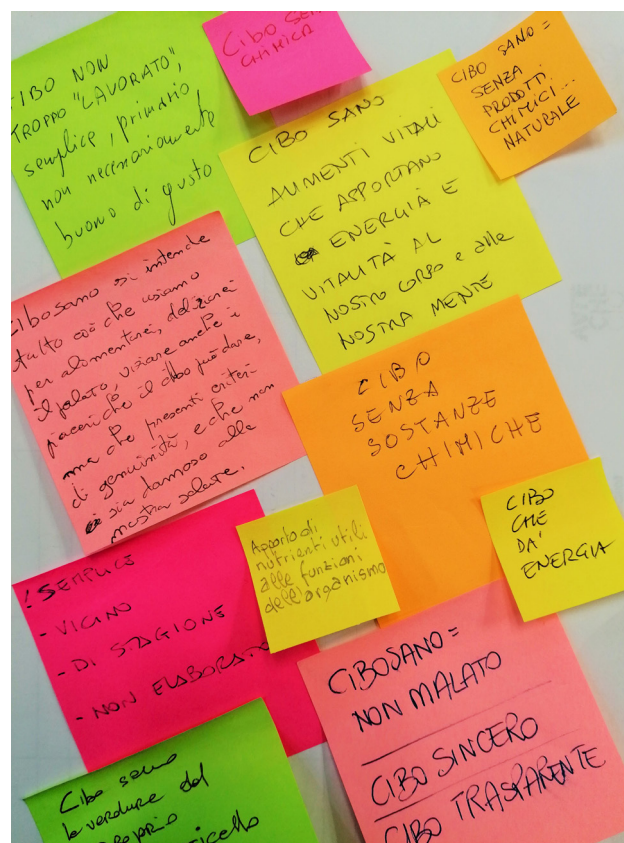 CIBO NON
TROPPO "LAVORATO",
semplice, primario,
non necessariamente
buono di gusto
CIBO SENZA
CHIMICA
CIBO SANO =
SENZA
PRODOTTI
CHIMICI...
NATURALE
CIBO SANO
ALIMENTI VITALI
CHE APPORTANO
ENERGIA E
VITALITÀ AL
NOSTRO CORPO e alla
NOSTRA MENTE
Cibo sano si intende
tutto ciò che usiamo
per alimentarci, deliziarci
il palato, viziare anche i
piaceri che il cibo può dare,
ma che presenti criteri
di genuinità, e che non
sia dannoso alla
nostra salute.
CIBO
SENZA
SOSTANZE
CHIMICHE
Apporto di
nutrienti utili
alle funzioni
dell'organismo
CIBO
CHE
DA'
ENERGIA
! SEMPLICE
- VICINO
- DI STAGIONE
- NON ELABORATO
CIBO SANO =
NON MALATO
CIBO SINCERO
CIBO TRASPARENTE
Cibo sano
le verdure del
proprio